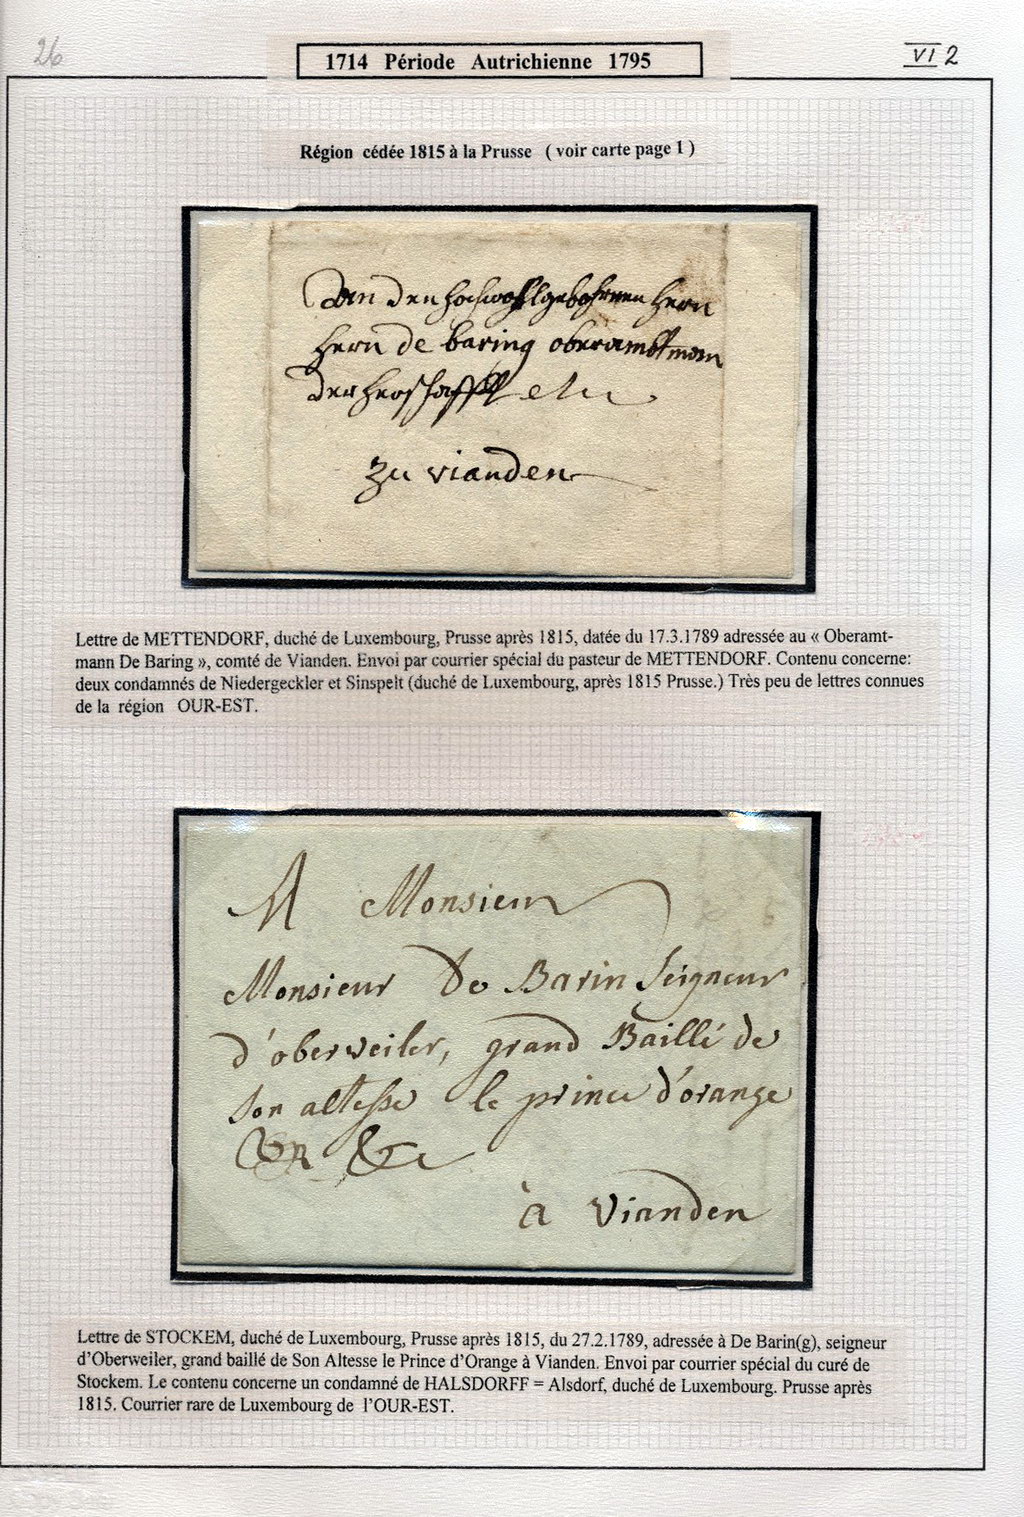 26
1714 Période Autrichienne 1795
VI 2
Région cédée 1815 à la Prusse ( voir carte page 1 )
An den hochwohlgebohrnen Hern
Hern de baring oberambtman
der herschafft
zu vianden
Lettre de METTENDORF, duché de Luxembourg, Prusse après 1815, datée du 17.3.1789 adressée au « Oberamt-
mann De Baring », comté de Vianden. Envoi par courrier spécial du pasteur de METTENDORF. Contenu concerne:
deux condamnés de Niedergeckler et Sinspelt (duché de Luxembourg, après 1815 Prusse.) Très peu de lettres connues
de la région OUR-EST.
A Monsieur
Monsieur De Barin Seigneur
d'oberweiler, grand Baillé de
Son altesse le prince d'orange
&c
à Vianden
Lettre de STOCKEM, duché de Luxembourg, Prusse après 1815, du 27.2.1789, adressée à De Barin(g), seigneur
d'Oberweiler, grand baillé de Son Altesse le Prince d'Orange à Vianden. Envoi par courrier spécial du curé de
Stockem. Le contenu concerne un condamné de HALSDORFF = Alsdorf, duché de Luxembourg. Prusse après
1815. Courrier rare de Luxembourg de l'OUR-EST.